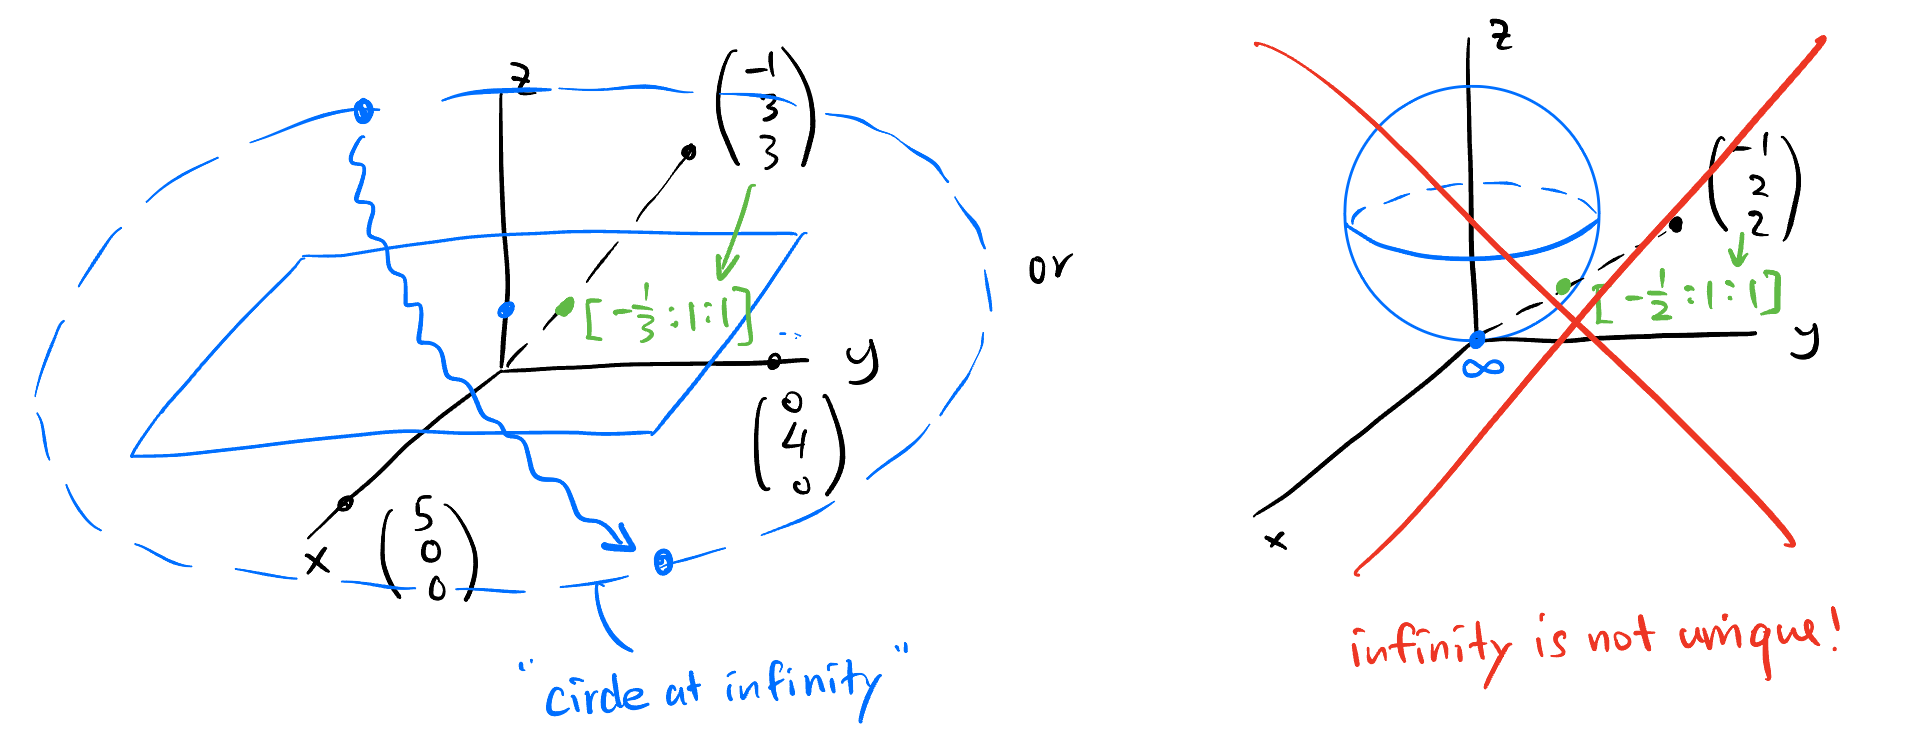 z
(-1
3
3)
[-1/3 : 1 : 1]
y
(0
4
0)
x
(5
0
0)
"circle at infinity"
or
z
(-1
2
2)
[-1/2 : 1 : 1]
y
∞
x
infinity is not unique!